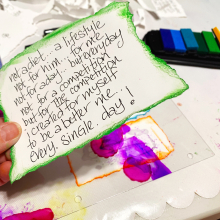 not a diet... a lifestyle
not for him... for me.
not for a day... but everyday
not for a competition
but the competition
i created for myself
to be a better me...
every. single. day!